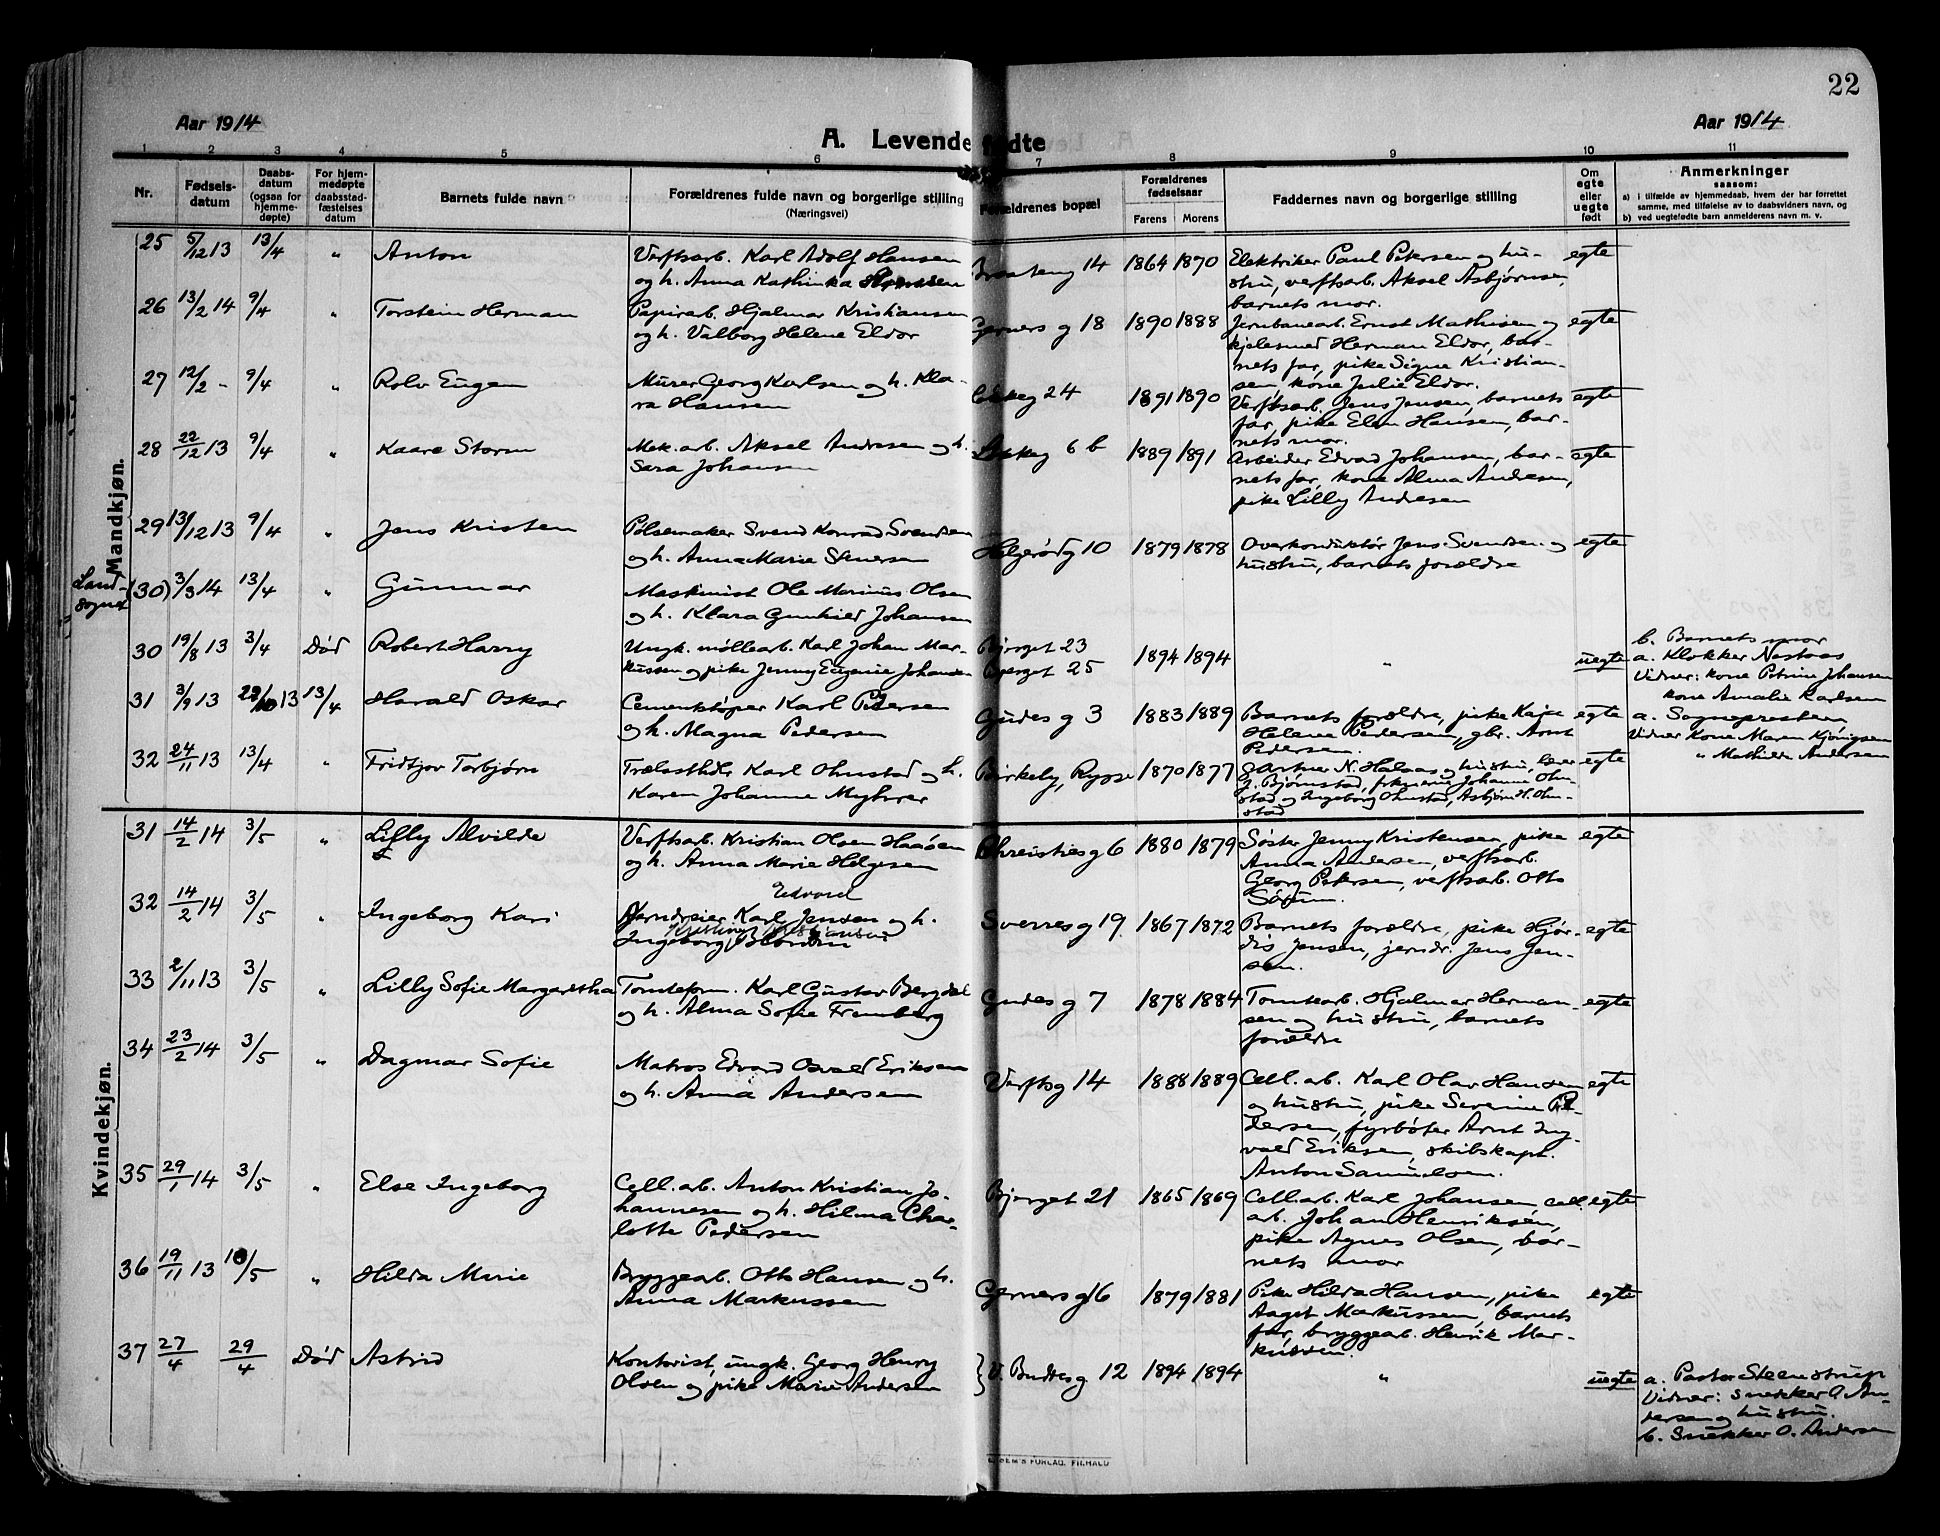 22
Aar 1914
A. Levende fødte
Aar 1914
1 2 3 4 5 6 7 8 9 10 11
Nr.
Fødsels-
datum
Daabs-
datum
(ogsaa for
hjemme-
døpte)
For hjem-
medøpte
daabsstad-
fæstelses
datum
Barnets fulde navn
Forældrenes fulde navn og borgerlige stilling
(Næringsvei)
Forældrenes bopæl
Forældrenes
fødselsaar
Farens Morens
Faddernes navn og borgerlige stilling
Om
egte
eller
uegte
født
Anmerkninger
saasom:
a) i tilfælde av hjemmedaab, hvem der har forrettet
samme, med tilføielse av to daabsvidners navn, og
b) ved uegtefødte barn anmelderens navn m. v.
Mandkjøn.
25 5/12 13 13/4 " Anton
Verftsarb. Karl Adolf Hansen
og h. Anna Kathinka Hansen
Braateng 14 1864 1870
Elektriker Paul Petersen og hu-
stru, verftsarb. Aksel Asbjørnsen,
barnets mor.
egte
26 13/2 14 9/4 " Torstein Herman
Papirarb. Hjalmar Kristiansen
og h. Valborg Helene Eldor
Gerners g 18 1890 1888
Jernbanearb. Ernst Mathisen og
kjelesmed Herman Eldor, bar-
nets far, pike Signe Kristian-
sen, kone Julie Eldor.
egte
27 12/2 - 9/4 " Rolv Eugen
Murer Georg Karlsen og h. Kla-
ra Hansen
24 1891 1890
Verftsarb. Jens Jensen, barnets
far, pike Elen Hansen, bar-
nets mor.
egte
28 22/12 13 9/4 " Kaare Storm
Mek. arb. Aksel Andresen og h.
Sara Johansen
6 b 1889 1891
Arbeider Edvard Johansen, bar-
nets far, kone Alma Andresen,
pike Lilly Andresen
egte
29 13/12 13 9/4 " Jens Kristen
Pølsemaker Svend Konrad Svendsen
og h. Anna Marie Stenersen
Helgerødg 10 1879 1878
Overkonduktør Jens Svendsen og
hustru, barnets forældre
egte
Land-
sognet
(30) 3/3 14 13/4 " Gunnar
Maskinist Ole Marius Olsen
og h. Klara Gunhild Johansen
30 19/8 13 3/4 Død Robert Harry
Ungk. møllearb. Karl Johan Mar-
kussen og pike Jenny Eugenie Johansen
Bjerget 23
Bjerget 25
1894 1894 " uegte
b. Barnets mor
a. Klokker Nestaas
Vidner: kone Petrine Johansen
kone Amalie Karlsen
31 3/9 13 29/10 13 13/4 Harald Oskar
Cementstøper Karl Pedersen
og h. Magna Pedersen
Gudes g 3 1883 1889
Barnets forældre, pike Kaja
Helene Pedersen, gbr. Arnt
Pedersen.
egte
a. Sognepresten
Vidner Kone Maren Kjønigsen
" Mathilde Andersen
32 24/11 13 13/4 " Fridtjov Torbjørn
Trælasthdlr Karl Ohnstad og h.
Karen Johanne Myhrer
Birkeby, Rygge 1870 1877
Gartner N. Halaas og hustru, lærer
J. Bjørnstad, frknerne Johanne Ohn-
stad og Ingeborg Ohnstad, Asbjørn H. Ohn-
stad
egte
Kvindekjøn.
31 14/2 14 3/5 " Lilly Alvilde
Verftsarb. Kristian Olsen Haaøen
og h. Anna Marie Helgesen
Chreisties g 6 1880 1879
Søster Jenny Kristensen, pike
Anna Andersen, verftsarb.
Georg Petersen, verftsarb. Otto
Sørum.
egte
32 14/2 14 3/5 " Ingeborg Kari
Edvard
Jerndreier Karl Jensen og h.
Ingeborg
Sverres g 19. 1867 1872
Barnets forældre, pike Hjør-
dis Jensen, jerndr. Jens Jen-
sen.
egte
33 2/11 13 3/5 " Lilly Sofie Margaretha
Tomteform. Karl Gustav Bergdal
og h. Alma Sofie Fremberg
Gudes g 7 1878 1884
Tomtearb. Hjalmar Herman-
sen og hustru, barnets
forældre
egte
34 23/2 14 3/5 " Dagmar Sofie
Matros Edvard Osvald Eriksen
og h. Anna Andersen
Verftsg 14 1888 1889
Cell. arb. Karl Olav Hansen
og hustru, pike Severine Pe-
dersen, fyrbøter Arnt Ing-
vald Eriksen, skibskapt.
Anton Samuelsen.
egte
35 29/1 14 3/5 " Else Ingeborg
Cell. arb. Anton Kristian Jo-
hannesen og h. Hilma Char-
lotte Pedersen
Bjerget 21 1865 1869
Cell. arb. Karl Johansen, cell.
arb. Johan Henriksen,
pike Agnes Olsen, bar-
nets mor
egte
36 19/11 13 10/5 " Hilda Marie
Bryggearb. Otto Hansen og h.
Anna Markussen
Gerners g 16 1879 1881
Pike Hilda Hansen, pike
Aagot Markussen, barnets
far, bryggearb. Henrik Mar-
kussen.
egte
37 27/4 29/4 Død Astrid
Kontorist, ungk. Georg Henry
Olsen og pike Marie Andersen
V. Buttes g 12 1894 1894 " uegte
a. Pastor Steenstrup
Vidner: snekker O. An-
dersen og hustru.
b. Snekker O. Andersen
FORLAG, FR.HALD